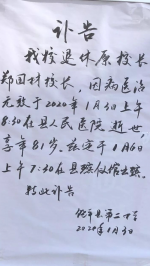 讣告
我校退休原校长
郑国科校长，因病医治
无效于2020年1月3日上午
8:30在县人民医院逝世，
享年81岁。兹定于1月6日
上午7:30在县殡仪馆出殡。
特此讣告
县第二中学
2020年1月3日